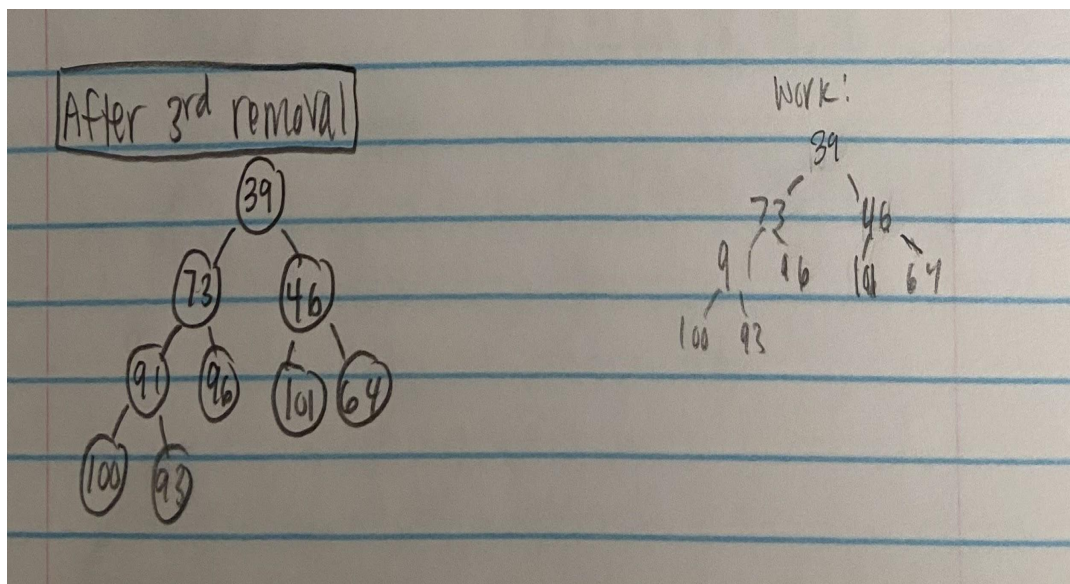 After 3rd removal
39
73 46
91 96 101 64
100 93
Work:
39
73 46
9 96 101 64
100 93